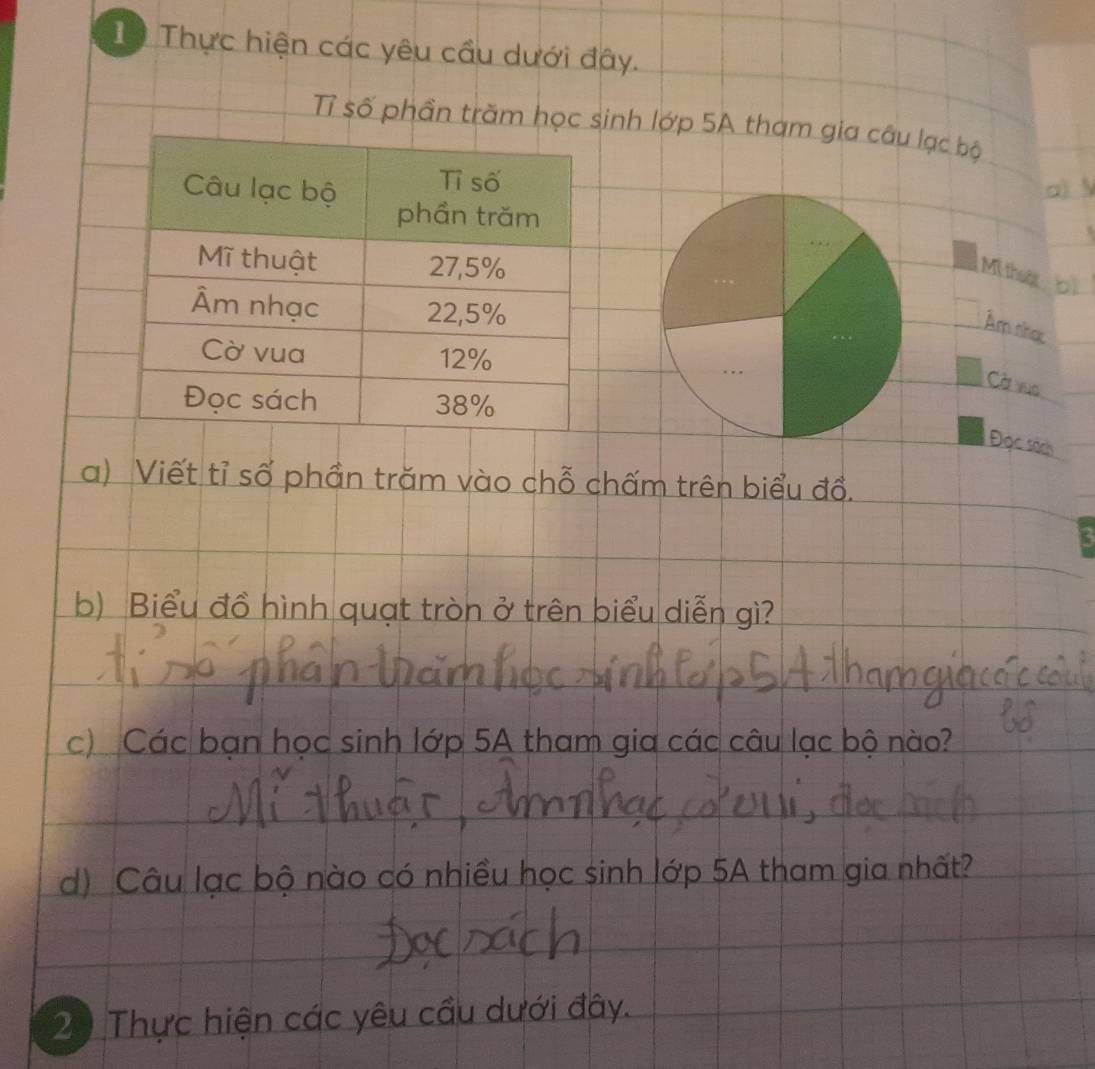 1 Thực hiện các yêu cầu dưới đây.
Tỉ số phần trăm học sinh lớp 5A tham gia câu lạc bộ
Câu lạc bộ Tỉ số phần trăm
Mĩ thuật 27,5%
Âm nhạc 22,5%
Cờ vua 12%
Đọc sách 38%
...
...
...
...
Mĩ thuật
Âm nhạc
Cờ vua
Đọc sách
a)
b)
3
a) Viết tỉ số phần trăm vào chỗ chấm trên biểu đồ.
b) Biểu đồ hình quạt tròn ở trên biểu diễn gì?
tỉ số phần trăm học sinh lớp 5A tham gia các câu
bộ
c) Các bạn học sinh lớp 5A tham gia các câu lạc bộ nào?
Mĩ thuật, Âm nhạc, cờ vui, đọc sách
d) Câu lạc bộ nào có nhiều học sinh lớp 5A tham gia nhất?
Đọc sách
2 Thực hiện các yêu cầu dưới đây.